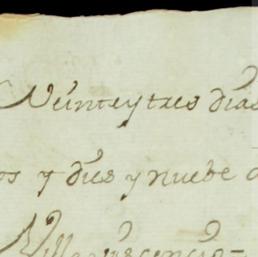 Veinte y tres dias
os y dies y nuebe
Villavicencio